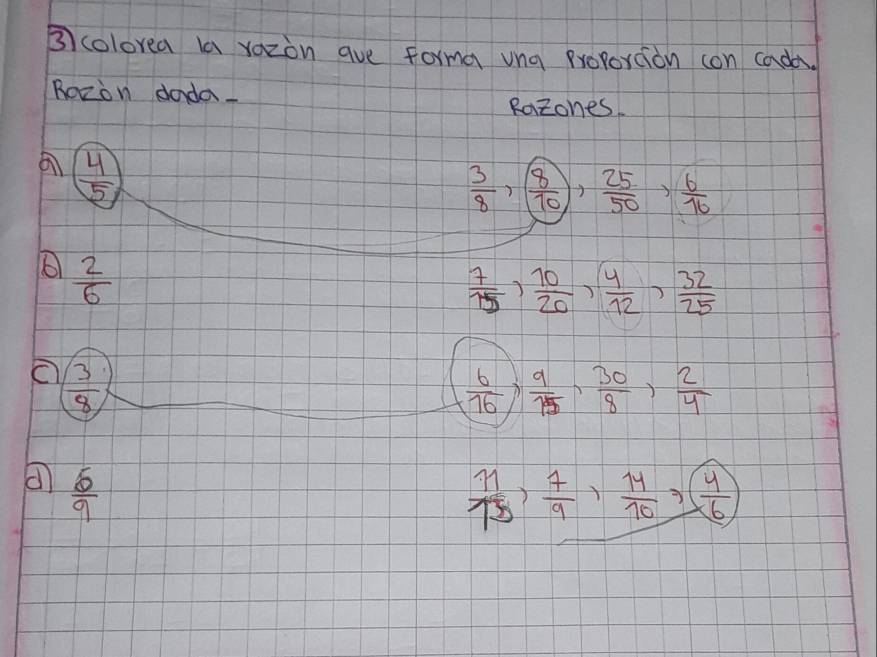 3) colorea la razòn que forma una Proporciòn con cada.
Razòn dada-
Razones.
a) 4/5 3/8, 8/10, 25/50, 6/16
b) 2/6 7/15, 10/20, 4/12, 32/25
c) 3/8 6/16, 9/15, 30/8, 2/4
d) 6/9 11/15, 7/9, 14/10, 4/6